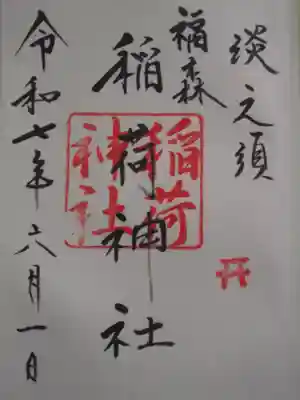 淡之須
福森
稲荷神社
稲荷
神社
令和七年六月一日